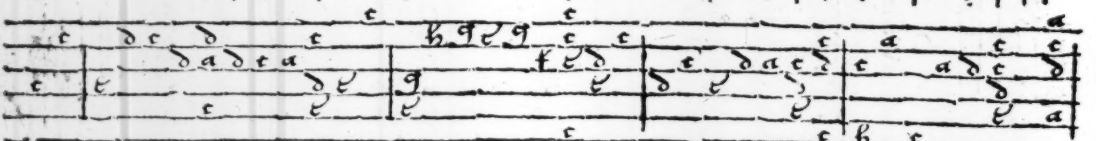 c c a
c d c d c h g e g c c c a c c
d a d c a f e d c d a c d c a d c d
c e d e g e d e d
c e e e e a
c c h c